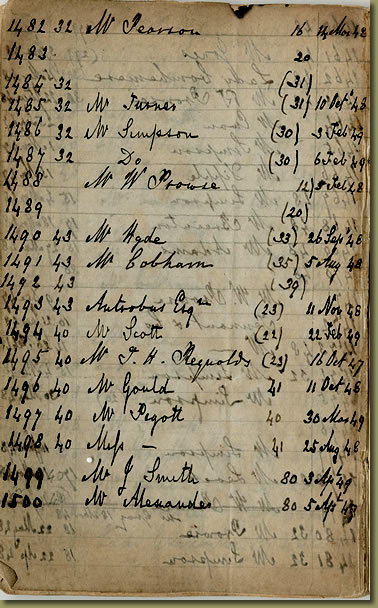 1482 32 Mr Pearson 16 14 Nov 48
1483 20
1484 32 (31)
1485 32 Mr Turner (31) 10 Oct 48
1486 32 Mr Simpson (30) 3 Feb 49
1487 32 Do (30) 6 Feb 49
1488 Mr W Prowse 12) 5 Feb 48
1489 (20)
1490 43 Mr Hyde (33) 26 Sept 48
1491 43 Mr Cobham (35) 5 Aug 48
1492 43 (39)
1493 43 Antrobus Esqr (23) 11 Nov 48
1494 40 Mr Scott (22) 22 Feb 49
1495 40 Mr J. H. Reynolds (23) 16 Oct 47
1496 40 Mr Gould 41 11 Oct 48
1497 40 Mr Pigott 40 30 Mar 49
1498 40 Mess — 41 25 Aug 48
1499 Mr J Smith 80 3 Apl 49
1500 Mr Alexander 80 5 Apl